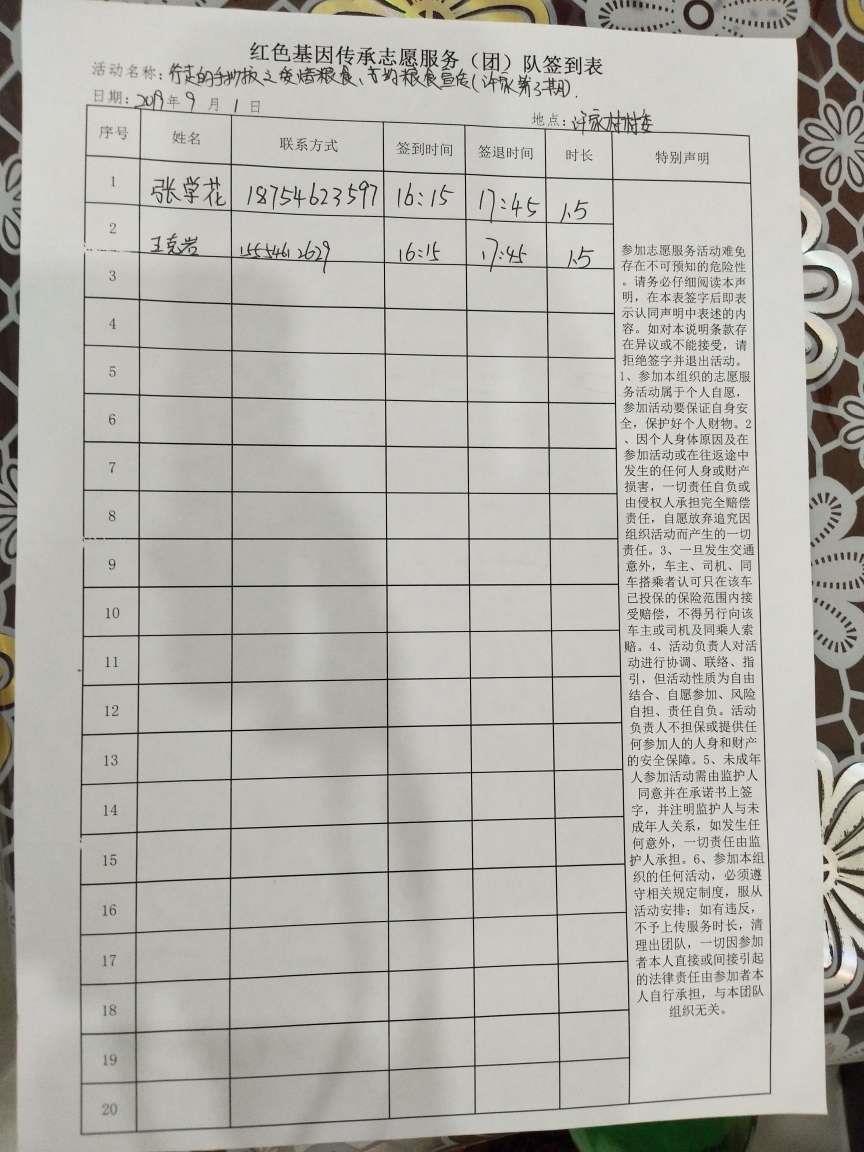 红色基因传承志愿服务（团）队签到表
活动名称：行走的手抄报之爱惜粮食、节约粮食宣传（许家第3期）.
日期：2019年9月1日
地点：许家村村委
序号 姓名 联系方式 签到时间 签退时间 时长 特别声明
1 张学花 18754623597 16:15 17:45 1.5
2 王克岩 15554612629 16:15 17:45 1.5
3
4
5
6
7
8
9
10
11
12
13
14
15
16
17
18
19
20
参加志愿服务活动难免
存在不可预知的危险性
。请务必仔细阅读本声
明，在本表签字后即表
示认同声明中表述的内
容。如对本说明条款存
在异议或不能接受，请
拒绝签字并退出活动。
1、参加本组织的志愿服
务活动属于个人自愿，
参加活动要保证自身安
全，保护好个人财物。2
、因个人身体原因及在
参加活动或在往返途中
发生的任何人身或财产
损害，一切责任自负或
由侵权人承担完全赔偿
责任，自愿放弃追究因
组织活动而产生的一切
责任。3、一旦发生交通
意外，车主、司机、同
车搭乘者认可只在该车
已投保的保险范围内接
受赔偿，不得另行向该
车主或司机及同乘人索
赔。4、活动负责人对活
动进行协调、联络、指
引，但活动性质为自由
结合、自愿参加、风险
自担、责任自负。活动
负责人不担保或提供任
何参加人的人身和财产
的安全保障。5、未成年
人参加活动需由监护人
同意并在承诺书上签
字，并注明监护人与未
成年人关系，如发生任
何意外，一切责任由监
护人承担。6、参加本组
织的任何活动，必须遵
守相关规定制度，服从
活动安排；如有违反，
不予上传服务时长，清
理出团队，一切因参加
者本人直接或间接引起
的法律责任由参加者本
人自行承担，与本团队
组织无关。